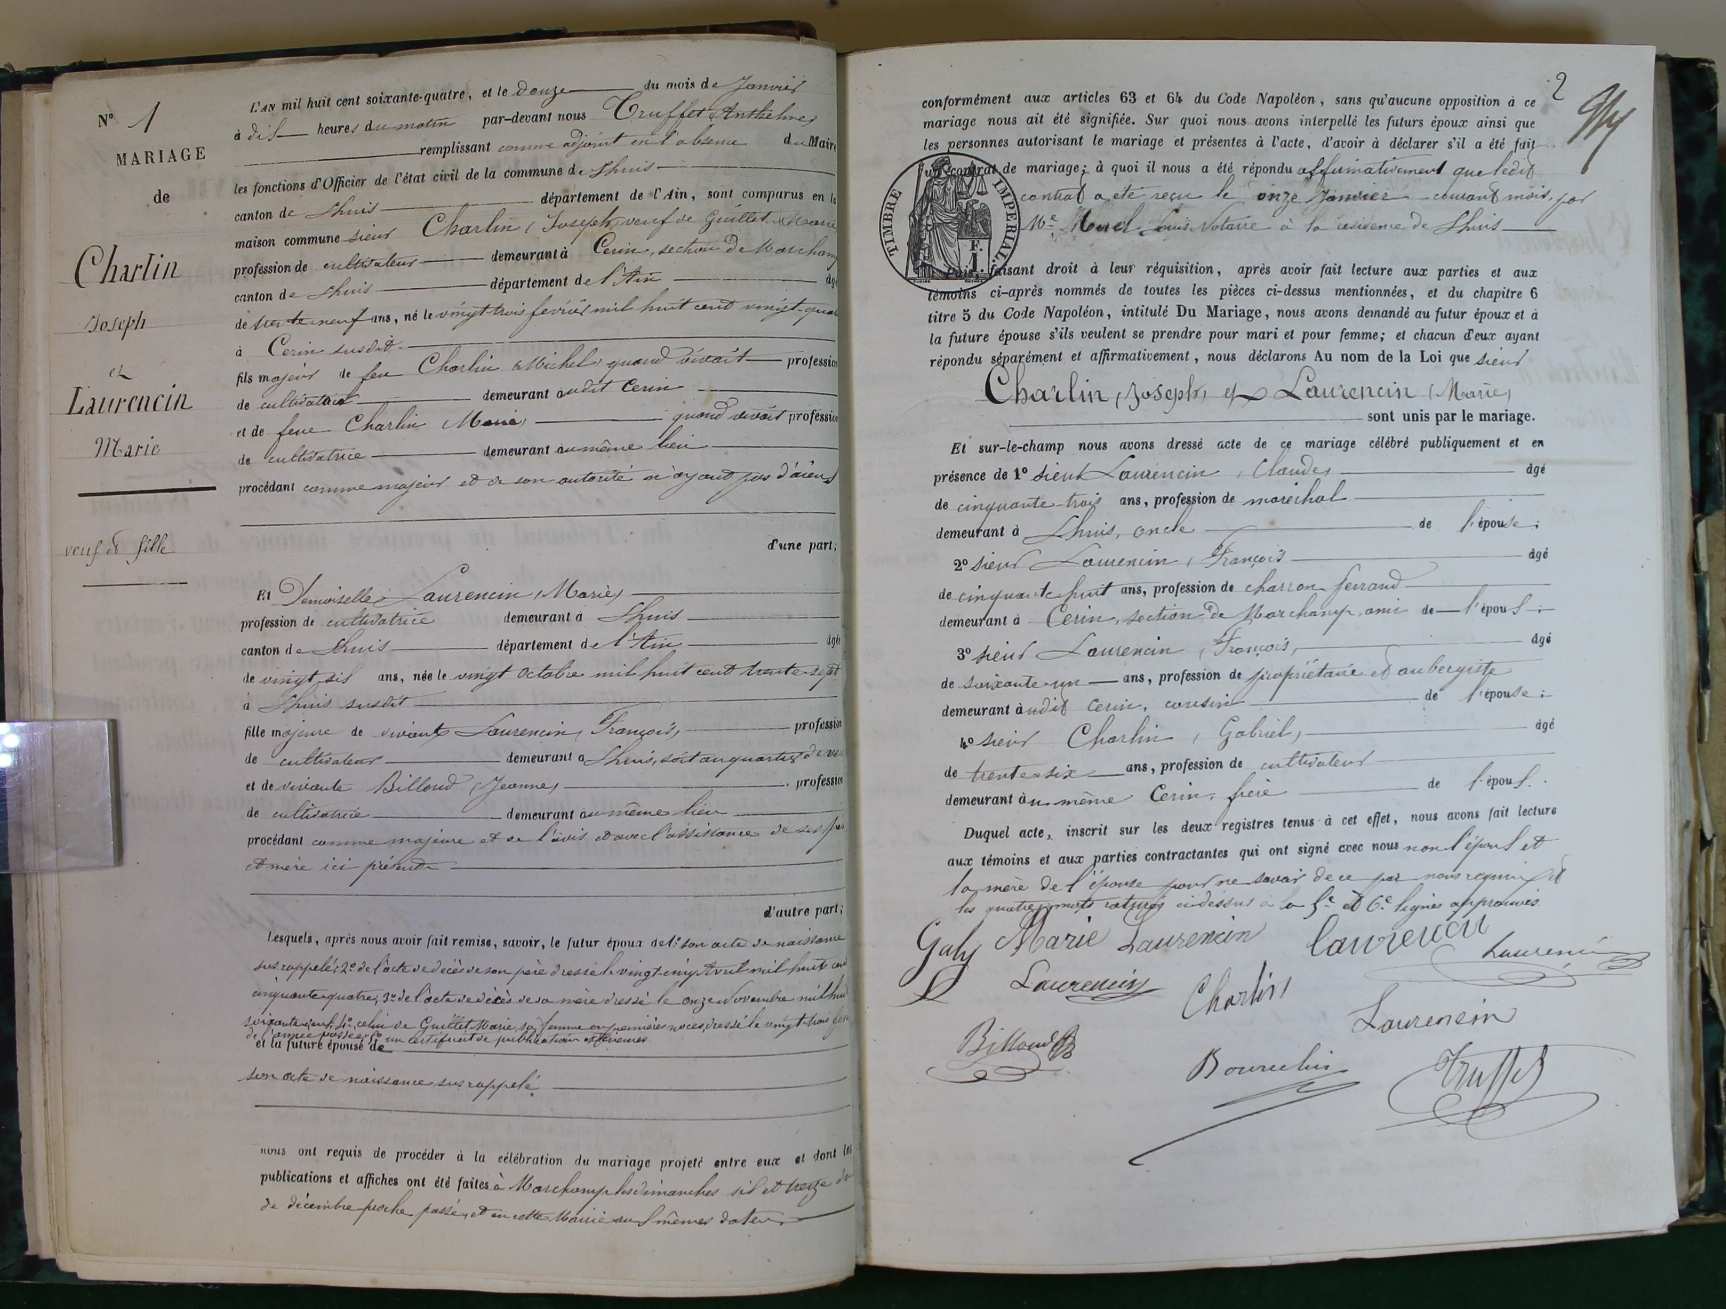 N° 1
MARIAGE
de
Charlin
Joseph
et
Laurencin
Marie
veuf et fille
L'AN mil huit cent soixante-quatre, et le douze du mois de Janvier
à dix heures du matin par-devant nous Truffet Anthelme
remplissant comme adjoint en l'absence du Maire
les fonctions d'Officier de l'état civil de la commune de Lhuis
canton de Lhuis département de l'Ain, sont comparus en la
maison commune sieur Charlin, Joseph, veuf de Guillet Marie
profession de cultivateur demeurant à Cerin, section de Marchamp
canton de Lhuis département de l'Ain âgé
de trente neuf ans, né le vingt trois février mil huit cent vingt-quatre
à Cerin susdit
fils majeur de feu Charlin Michel, quand vivait profession
de cultivateur demeurant audit Cerin
et de feue Charlin Marie quand vivait profession
de cultivatrice demeurant au même lieu
procédant comme majeur et de son autorité n'ayant pas d'aieux
d'une part;
Et Demoiselle Laurencin, Marie,
profession de cultivatrice demeurant à Lhuis
canton de Lhuis département de l'Ain âgée
de vingt six ans, née le vingt Octobre mil huit cent trente-sept
à Lhuis susdit
fille majeure de vivant Laurencin, François, profession
de cultivateur demeurant à Lhuis, soit au quartier de
et de vivante Billoud, Jeanne, profession
de cultivatrice demeurant au même lieu
procédant comme majeure et de l'avis et avec l'assistance de ses père
et mère ici présents
d'autre part;
Lesquels, après nous avoir fait remise, savoir, le futur époux de 1° son acte de naissance
sus rappelé; 2° de l'acte de décès de son père dressé le vingt-cinq Avril mil huit cent
cinquante quatre; 3° de l'acte de décès de sa mère dressé le onze Novembre mil huit
soixante un; 4° celui de Guillet Marie, sa femme en premières noces, dressé le vingt-trois
de l'année passée, 5° un certificat de publication
et la future épouse de
son acte de naissance sus rappelé
nous ont requis de procéder à la célébration du mariage projeté entre eux et dont les
publications et affiches ont été faites à Marchamp les dimanches six et treize du
de décembre proche passé, et en cette Mairie aux mêmes dates
2
conformément aux articles 63 et 64 du Code Napoléon, sans qu'aucune opposition à ce
mariage nous ait été signifiée. Sur quoi nous avons interpellé les futurs époux ainsi que
les personnes autorisant le mariage et présentes à l'acte, d'avoir à déclarer s'il a été fait
un contrat de mariage; à quoi il nous a été répondu affirmativement que ledit
contrat a été reçu le onze Janvier courant mois, par
Me Morel Louis Notaire à la résidence de Lhuis
TIMBRE IMPERIAL
F.
1.
Puis, faisant droit à leur réquisition, après avoir fait lecture aux parties et aux
témoins ci-après nommés de toutes les pièces ci-dessus mentionnées, et du chapitre 6
titre 5 du Code Napoléon, intitulé Du Mariage, nous avons demandé au futur époux et à
la future épouse s'ils veulent se prendre pour mari et pour femme; et chacun d'eux ayant
répondu séparément et affirmativement, nous déclarons Au nom de la Loi que sieur
Charlin, Joseph, et Laurencin, Marie,
sont unis par le mariage.
Et sur-le-champ nous avons dressé acte de ce mariage célébré publiquement et en
présence de 1° sieur Laurencin, Claude, âgé
de cinquante-trois ans, profession de maréchal
demeurant à Lhuis, oncle de l'épouse;
2° sieur Laurencin, François âgé
de cinquante huit ans, profession de charron ferrand
demeurant à Cerin, section de Marchamp, ami de l'époux;
3° sieur Laurencin, François, âgé
de soixante-un ans, profession de propriétaire et aubergiste
demeurant audit Cerin, cousin de l'épouse;
4° sieur Charlin, Gabriel, âgé
de trente-six ans, profession de cultivateur
demeurant au même Cerin, frère de l'époux.
Duquel acte, inscrit sur les deux registres tenus à cet effet, nous avons fait lecture
aux témoins et aux parties contractantes qui ont signé avec nous non l'époux et
la mère de l'épouse pour ne savoir de ce par nous requis et
les quatre mots raturés ci-dessus à la 5e et 6e lignes approuvés
Galy Marie Laurencin Laurencin Laurencin
Laurencin Charlin Laurencin
Billoud Bourchin Truffet